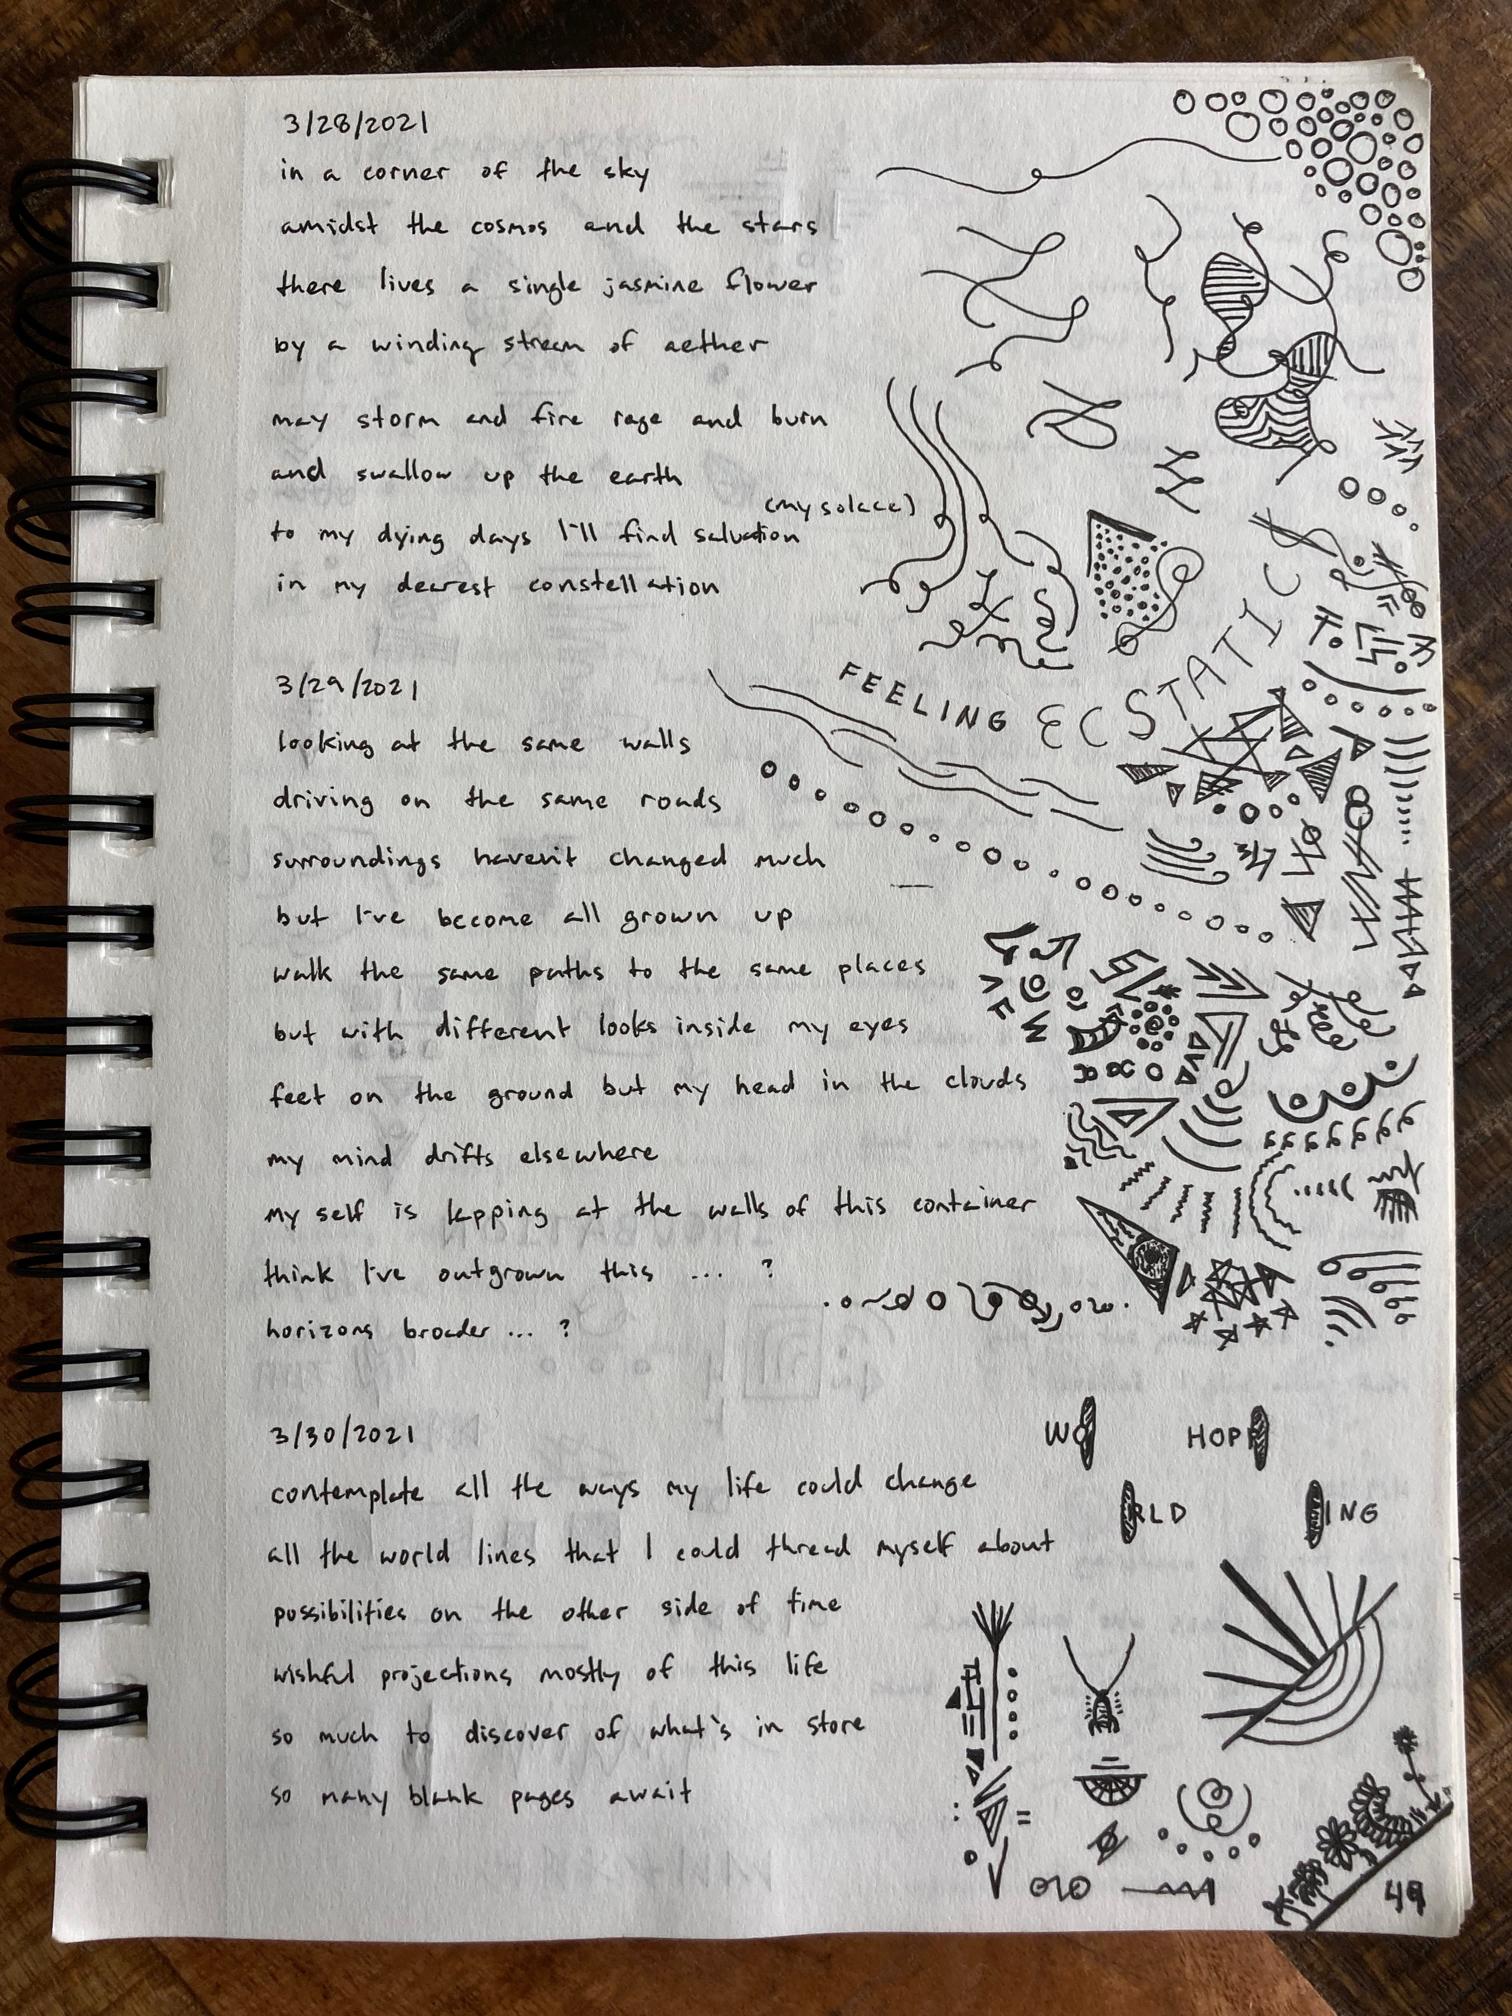 3/28/2021
in a corner of the sky
amidst the cosmos and the stars
there lives a single jasmine flower
by a winding stream of aether
may storm and fire rage and burn
and swallow up the earth
(my solace)
to my dying days I'll find salvation
in my dearest constellation
FEELING ECSTATIC
3/29/2021
looking at the same walls
driving on the same roads
surroundings haven't changed much
but I've become all grown up
walk the same paths to the same places
but with different looks inside my eyes
feet on the ground but my head in the clouds
my mind drifts elsewhere
my self is lapping at the walls of this container
think I've outgrown this ... ?
horizons broader ... ?
3/30/2021
WO HOPP
RLD ING
contemplate all the ways my life could change
all the world lines that I could thread myself about
possibilities on the other side of time
wishful projections mostly of this life
so much to discover of what's in store
so many blank pages await
49